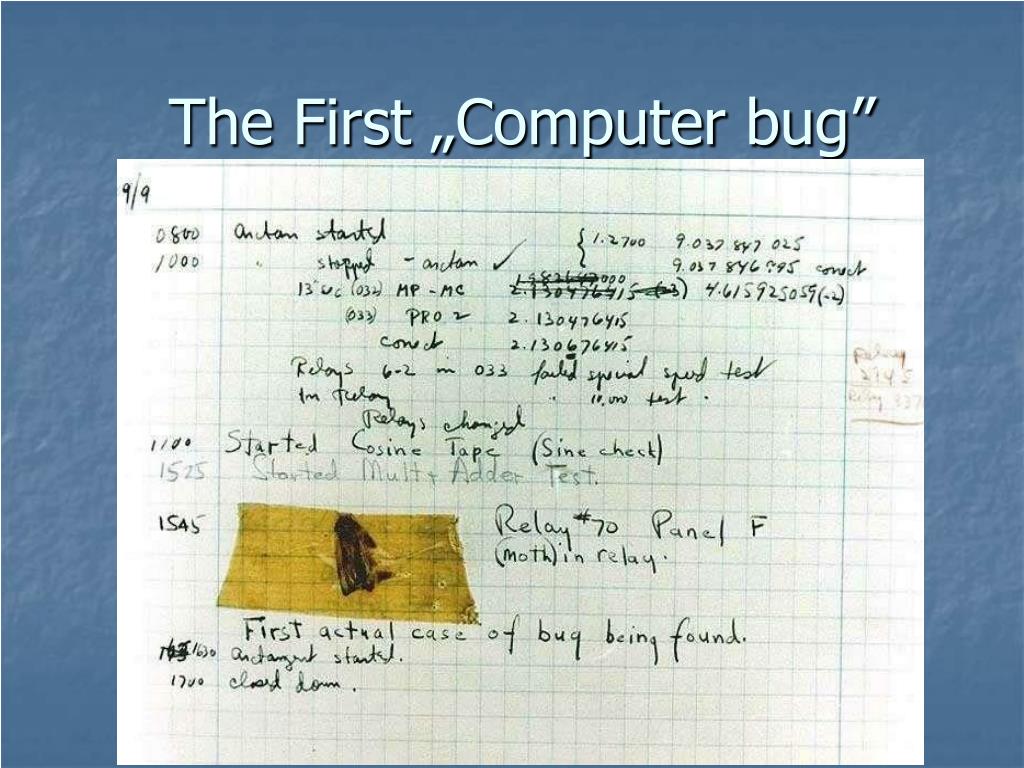 The First „Computer bug”
9/9
0800 arctan started { 1.2700 9.037 847 025
1000 " stopped - arctan ✓ 9.037 846 995 correct
13"uc (032) MP - MC 2.130476415 (-3) 4.615925059(-2)
(033) PRO 2 2.130476415
correct 2.130676415
Relays 6-2 in 033 failed special speed test
In Relay " 10,000 test .
Relays changed
Relay
Relay 337
1100 Started Cosine Tape (Sine check)
1525 Started Mult + Adder Test.
1545 Relay #70 Panel F
(moth) in relay.
First actual case of bug being found.
1630 arctangent started.
1700 closed down .